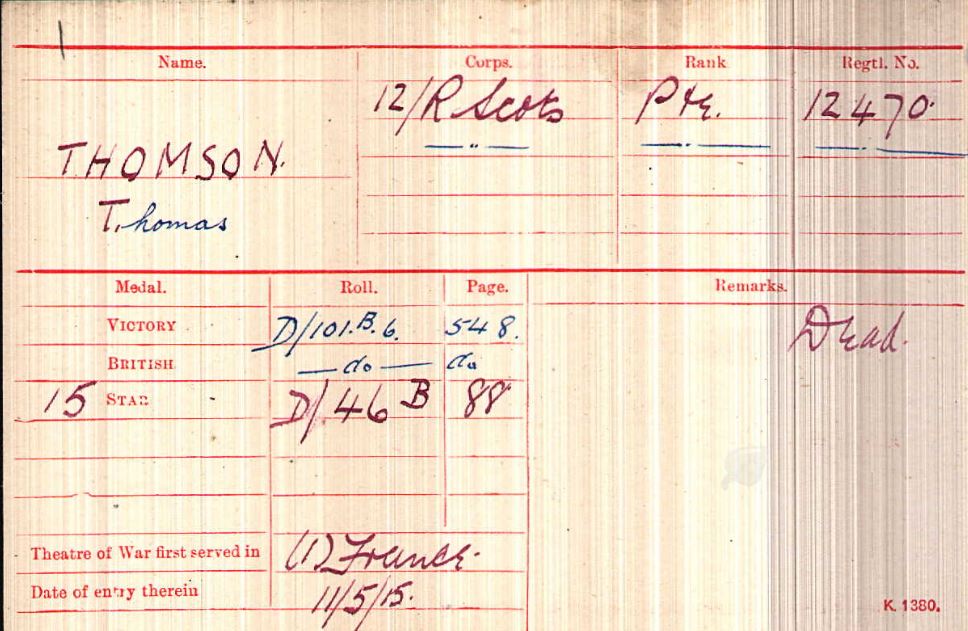 Name. Corps. Rank Regtl. No.
12/R Scots Pte. 12470.
THOMSON. —"— —"— —"—
T.homas
Medal. Roll. Page. Remarks.
VICTORY D/101.B.6. 548. Dead.
BRITISH —do— do
15 STAR D/46 B 88
Theatre of War first served in (1) France.
Date of entry therein 11/5/15.
K. 1380.